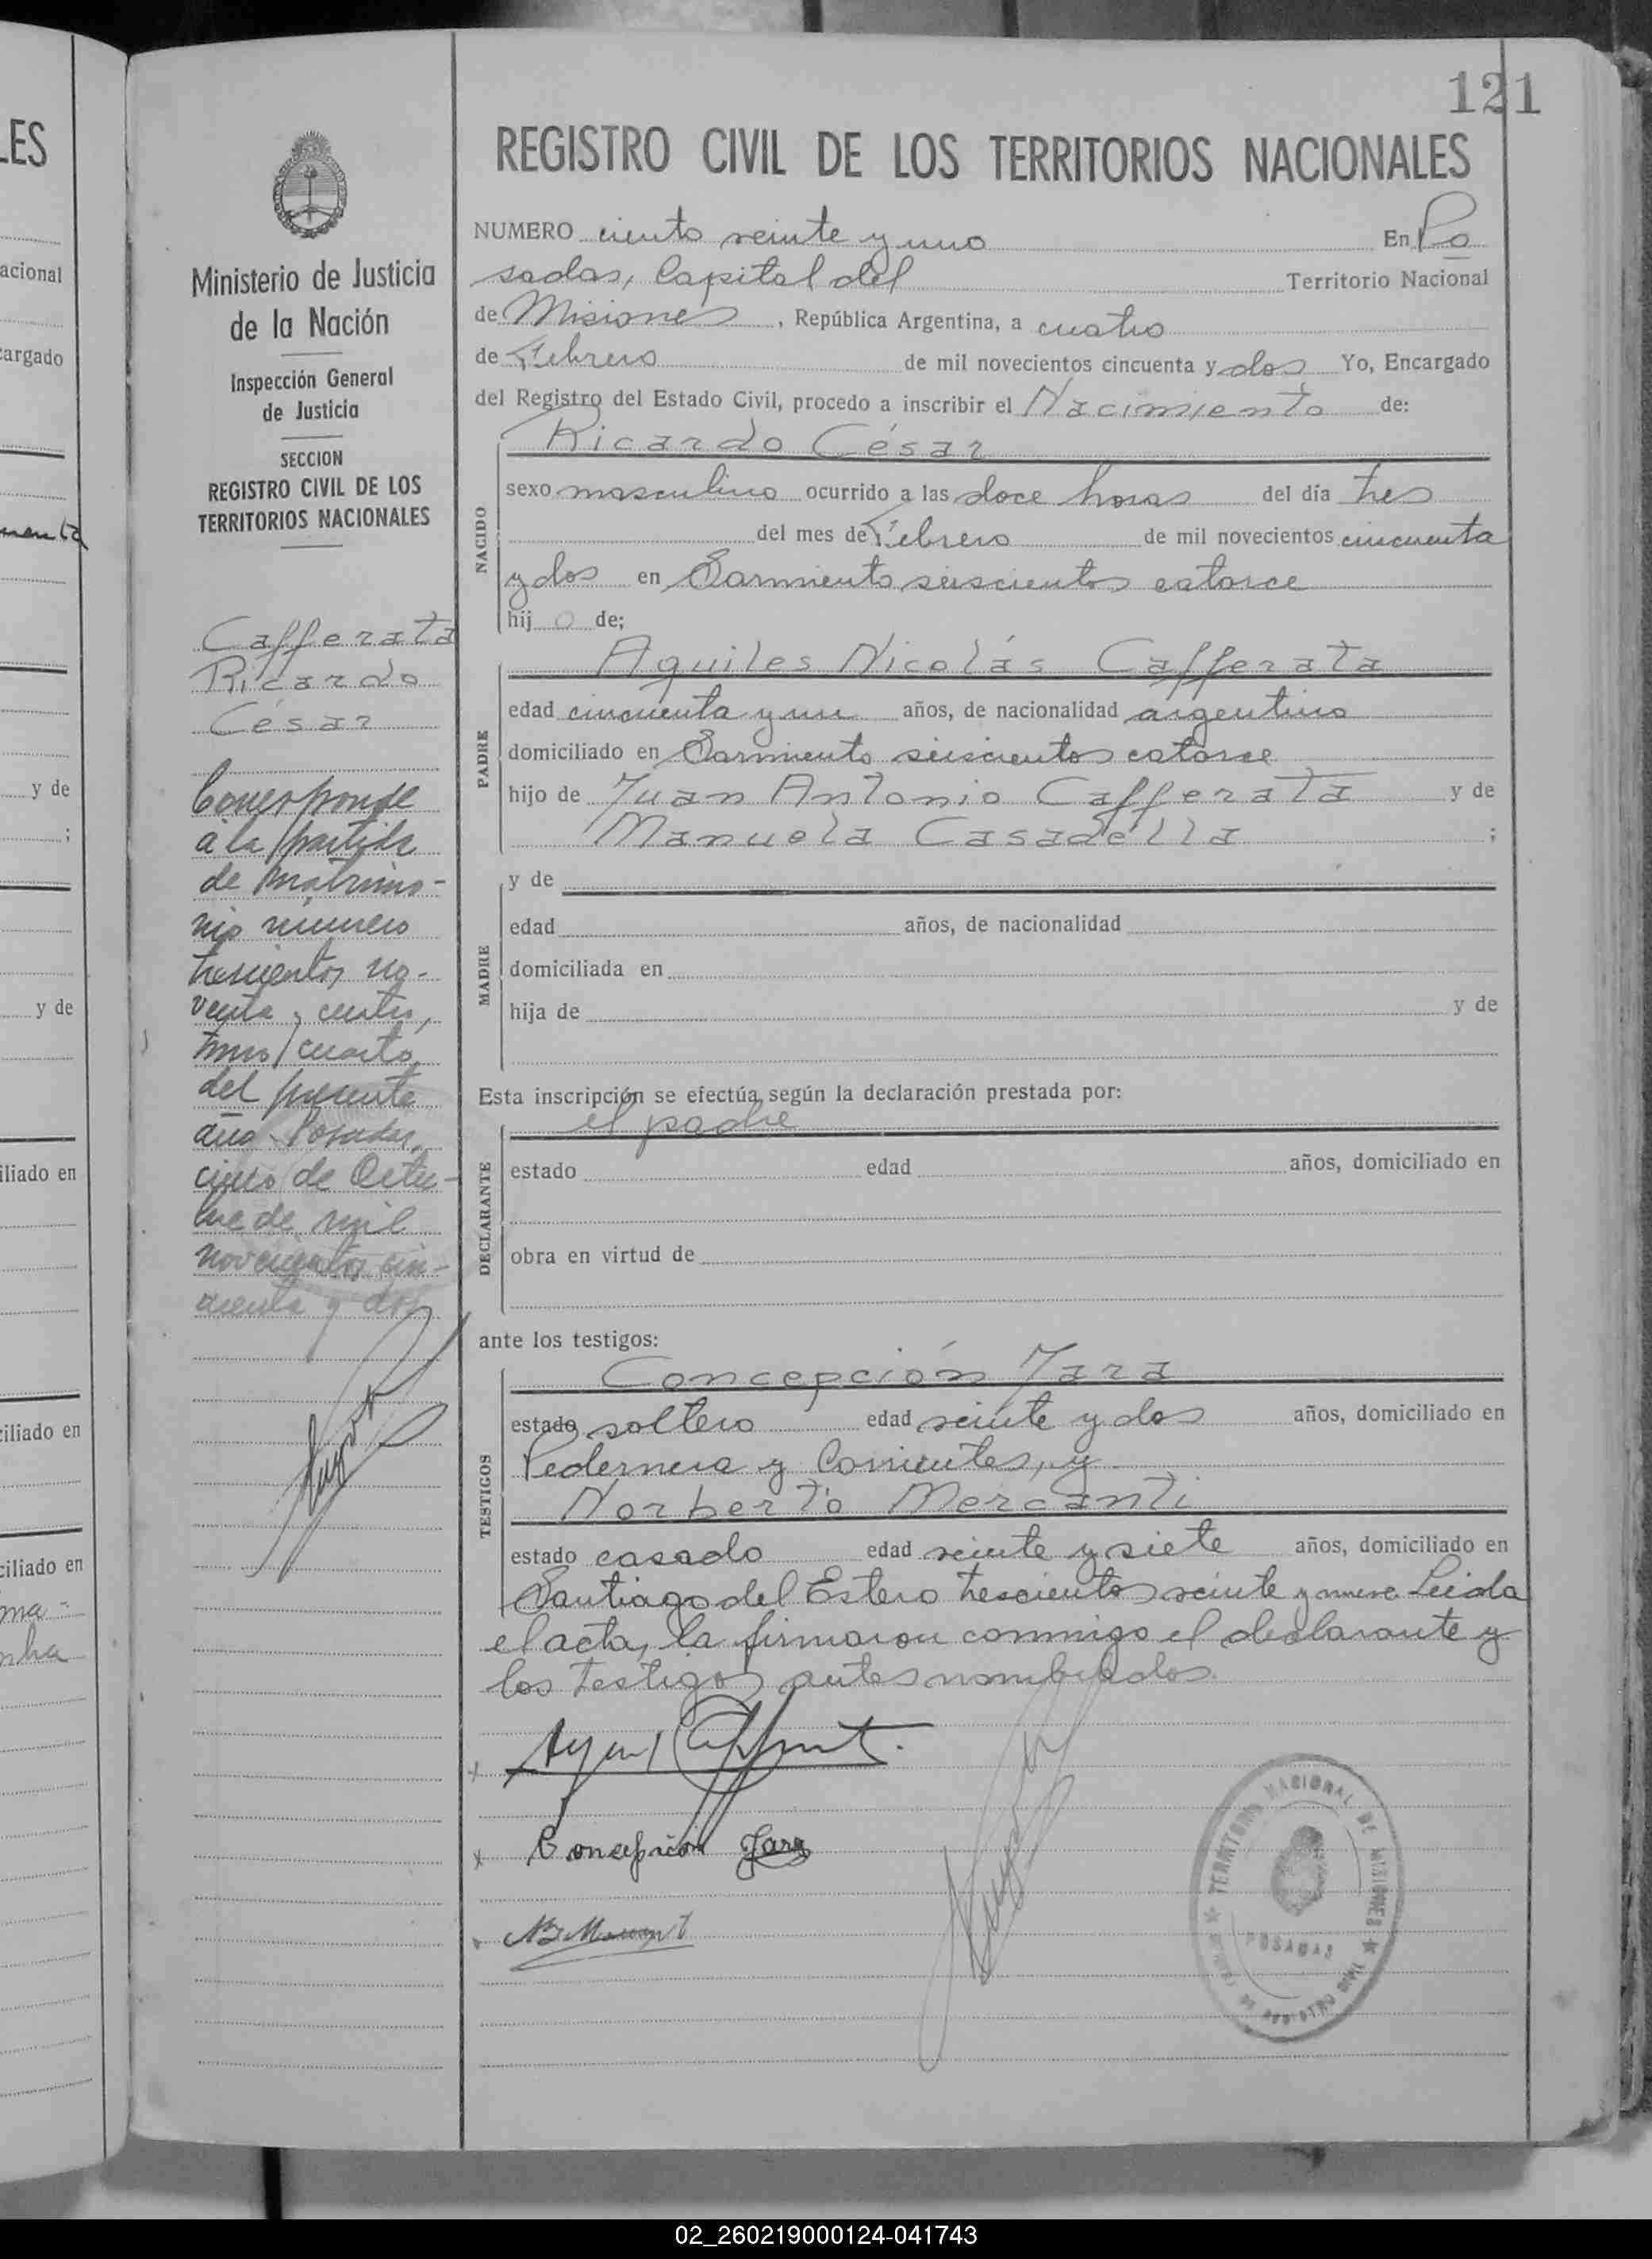 121
REGISTRO CIVIL DE LOS TERRITORIOS NACIONALES
NUMERO ciento veinte y uno En Po
sadas, Capital del Territorio Nacional
de Misiones, República Argentina, a cuatro
de Febrero de mil novecientos cincuenta y dos Yo, Encargado
del Registro del Estado Civil, procedo a inscribir el Nacimiento de:
NACIDO
Ricardo César
sexo masculino ocurrido a las doce horas del día tres
del mes de Febrero de mil novecientos cincuenta
y dos en Sarmiento seiscientos catorce
hijo de;
PADRE
Aquiles Nicolás Cafferata
edad cincuenta y un años, de nacionalidad argentino
domiciliado en Sarmiento seiscientos catorce
hijo de Juan Antonio Cafferata y de
Manuela Casadella;
MADRE
y de
edad años, de nacionalidad
domiciliada en
hija de y de
Esta inscripción se efectúa según la declaración prestada por:
DECLARANTE
el padre
estado edad años, domiciliado en
obra en virtud de
ante los testigos:
TESTIGOS
Concepción Jara
estado soltero edad veinte y dos años, domiciliado en
Pedernera y Corrientes, y
Norberto Mercanti
estado casado edad veinte y siete años, domiciliado en
Santiago del Estero trescientos veinte y nueve. Leida
el acta, la firmaron conmigo el declarante y
los testigos antes nombrados.
Concepción Jara
TERRITORIO NACIONAL DE MISIONES
POSADAS
Ministerio de Justicia
de la Nación
Inspección General
de Justicia
SECCION
REGISTRO CIVIL DE LOS
TERRITORIOS NACIONALES
Cafferata
Ricardo
César
Corresponde
a la partida
de matrimo-
nio número
trescientos no-
venta y cuatro,
tomo cuarto
del presente
año. Posadas,
cinco de Octu-
bre de mil
novecientos cin-
cuenta y dos
LES
acional
cargado
y de
;
y de
iliado en
ciliado en
ciliado en
02_260219000124-041743